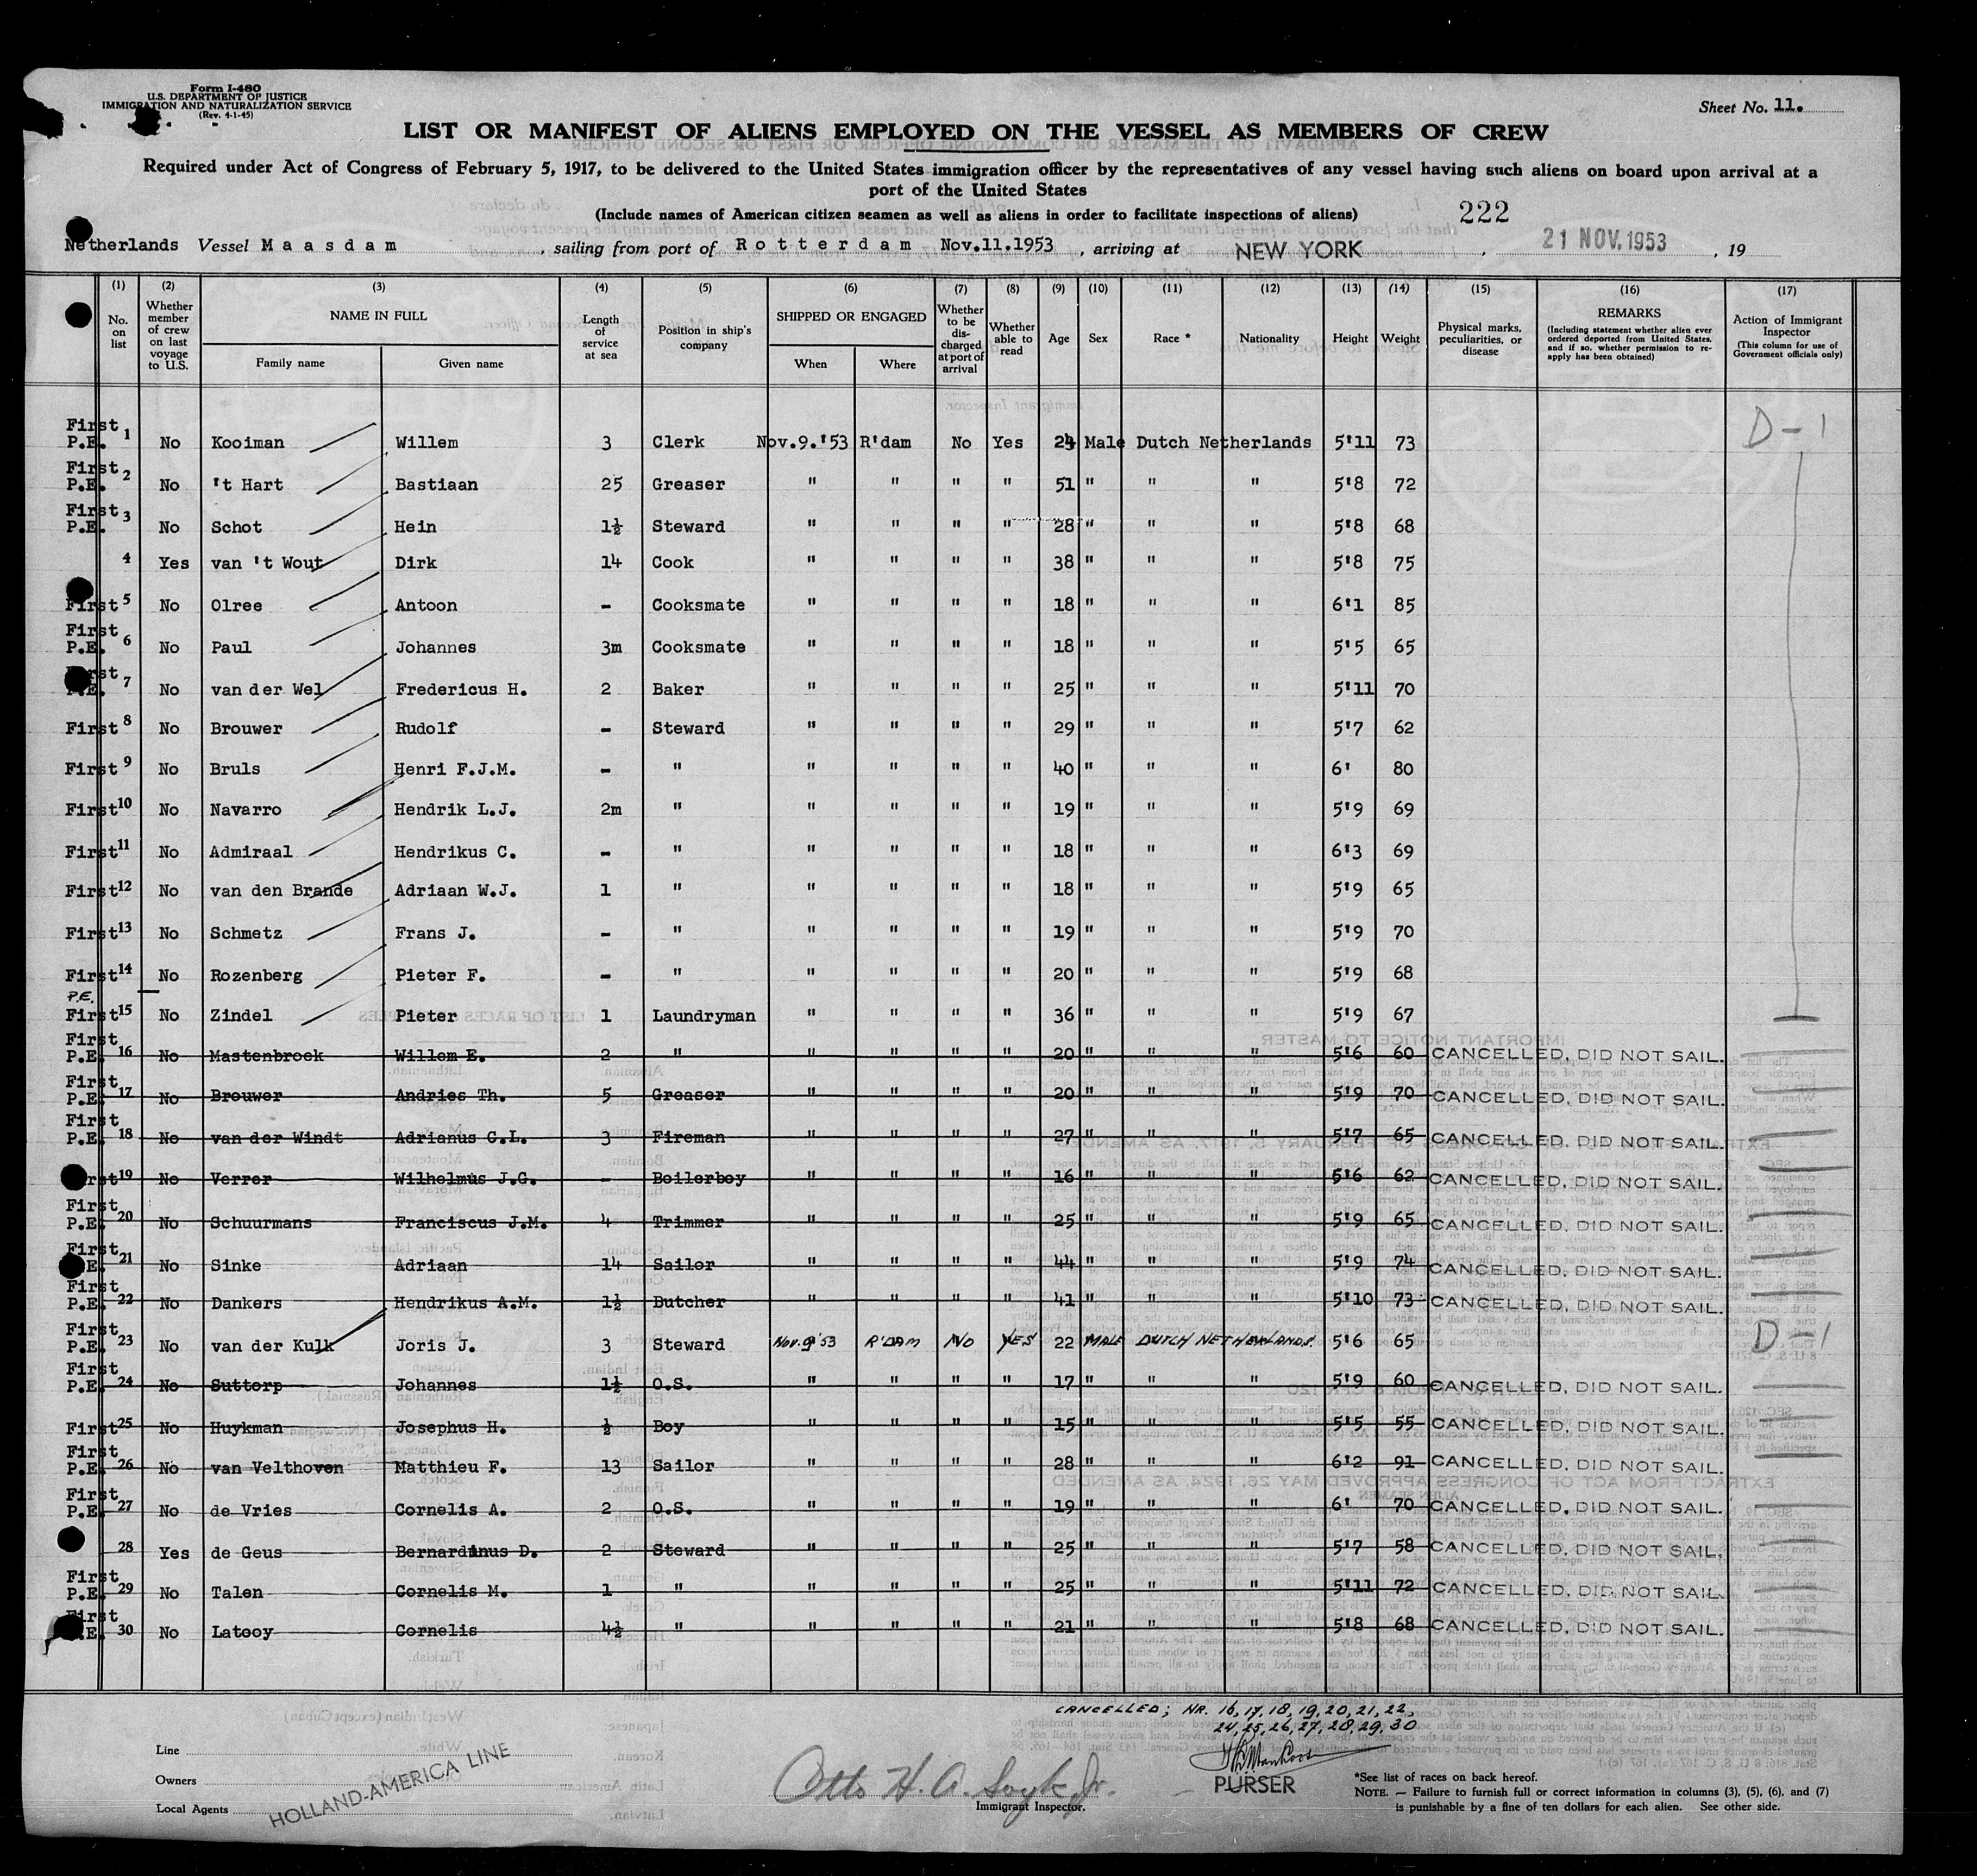 Form I-480
U.S. DEPARTMENT OF JUSTICE
IMMIGRATION AND NATURALIZATION SERVICE
(Rev. 4-1-45)
Sheet No. 11.
LIST OR MANIFEST OF ALIENS EMPLOYED ON THE VESSEL AS MEMBERS OF CREW
Required under Act of Congress of February 5, 1917, to be delivered to the United States immigration officer by the representatives of any vessel having such aliens on board upon arrival at a
port of the United States
(Include names of American citizen seamen as well as aliens in order to facilitate inspections of aliens)
222
Netherlands Vessel Maasdam, sailing from port of Rotterdam Nov.11.1953, arriving at NEW YORK, 21 NOV. 1953, 19
(1) No. on list
(2) Whether member of crew on last voyage to U.S.
(3) NAME IN FULL Family name Given name
(4) Length of service at sea
(5) Position in ship's company
(6) SHIPPED OR ENGAGED When Where
(7) Whether to be discharged at port of arrival
(8) Whether able to read
(9) Age
(10) Sex
(11) Race *
(12) Nationality
(13) Height
(14) Weight
(15) Physical marks, peculiarities, or disease
(16) REMARKS (Including statement whether alien ever ordered deported from United States, and if so, whether permission to re-apply has been obtained)
(17) Action of Immigrant Inspector (This column for use of Government officials only)
First P.E. 1 No Kooiman Willem 3 Clerk Nov.9.'53 R'dam No Yes 24 Male Dutch Netherlands 5'11 73 D-1
First P.E. 2 No 't Hart Bastiaan 25 Greaser " " " " 51 " " " 5'8 72
First P.E. 3 No Schot Hein 1½ Steward " " " " 28 " " " 5'8 68
4 Yes van 't Wout Dirk 14 Cook " " " " 38 " " " 5'8 75
First 5 No Olree Antoon - Cooksmate " " " " 18 " " " 6'1 85
First P.E. 6 No Paul Johannes 3m Cooksmate " " " " 18 " " " 5'5 65
First P.E. 7 No van der Wel Fredericus H. 2 Baker " " " " 25 " " " 5'11 70
First 8 No Brouwer Rudolf - Steward " " " " 29 " " " 5'7 62
First 9 No Bruls Henri F.J.M. - " " " " " 40 " " " 6' 80
First 10 No Navarro Hendrik L.J. 2m " " " " " 19 " " " 5'9 69
First 11 No Admiraal Hendrikus C. - " " " " " 18 " " " 6'3 69
First 12 No van den Brande Adriaan W.J. 1 " " " " " 18 " " " 5'9 65
First 13 No Schmetz Frans J. - " " " " " 19 " " " 5'9 70
First 14 No Rozenberg Pieter F. - " " " " " 20 " " " 5'9 68
P.E. First 15 No Zindel Pieter 1 Laundryman " " " " 36 " " " 5'9 67
First P.E. 16 No Mastenbroek Willem E. 2 " " " " " 20 " " " 5'6 60 CANCELLED, DID NOT SAIL.
First P.E. 17 No Brouwer Andries Th. 5 Greaser " " " " 20 " " " 5'9 70 CANCELLED, DID NOT SAIL.
First P.E. 18 No van der Windt Adrianus C.L. 3 Fireman " " " " 27 " " " 5'7 65 CANCELLED, DID NOT SAIL.
First 19 No Verrer Wilhelmus J.G. - Boilerboy " " " " 16 " " " 5'6 62 CANCELLED, DID NOT SAIL.
First P.E. 20 No Schuurmans Franciscus J.M. 4 Trimmer " " " " 25 " " " 5'9 65 CANCELLED, DID NOT SAIL.
First P.E. 21 No Sinke Adriaan 14 Sailor " " " " 44 " " " 5'9 74 CANCELLED, DID NOT SAIL.
First P.E. 22 No Dankers Hendrikus A.M. 1½ Butcher " " " " 41 " " " 5'10 73 CANCELLED, DID NOT SAIL.
First P.E. 23 No van der Kulk Joris J. 3 Steward Nov.9'53 R'DAM NO YES 22 MALE DUTCH NETHERLANDS. 5'6 65 D-1
First P.E. 24 No Suttorp Johannes 1½ O.S. " " " " 17 " " " 5'9 60 CANCELLED, DID NOT SAIL.
First 25 No Huykman Josephus H. ½ Boy " " " " 15 " " " 5'5 55 CANCELLED, DID NOT SAIL.
First P.E. 26 No van Velthoven Matthieu F. 13 Sailor " " " " 28 " " " 6'2 91 CANCELLED, DID NOT SAIL.
First P.E. 27 No de Vries Cornelis A. 2 O.S. " " " " 19 " " " 6' 70 CANCELLED, DID NOT SAIL.
28 Yes de Geus Bernardinus D. 2 Steward " " " " 25 " " " 5'7 58 CANCELLED, DID NOT SAIL.
First P.E. 29 No Talen Cornelis M. 1 " " " " " 25 " " " 5'11 72 CANCELLED, DID NOT SAIL.
First P.E. 30 No Latooy Cornelis 4½ " " " " " 21 " " " 5'8 68 CANCELLED, DID NOT SAIL.
CANCELLED; NR. 16, 17, 18, 19, 20, 21, 22,
24, 25, 26, 27, 28, 29, 30
Line
Owners
Local Agents
HOLLAND-AMERICA LINE
Otto H. A.
Immigrant Inspector.
PURSER
*See list of races on back hereof.
NOTE. — Failure to furnish full or correct information in columns (3), (5), (6), and (7)
is punishable by a fine of ten dollars for each alien. See other side.